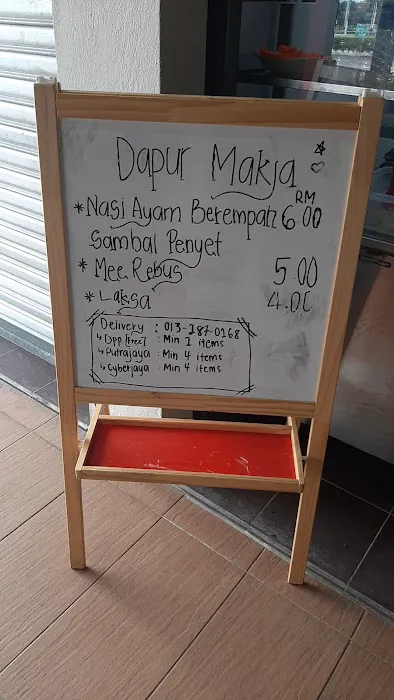 Dapur Makja
RM
* Nasi Ayam Berempah 6.00
Sambal Penyet
* Mee Rebus 5 00
* Laksa 4.00
Delivery : 013-287-0268
↳ Dpp [free] : Min 2 items
↳ Putrajaya : Min 4 items
↳ Cyberjaya : Min 4 items